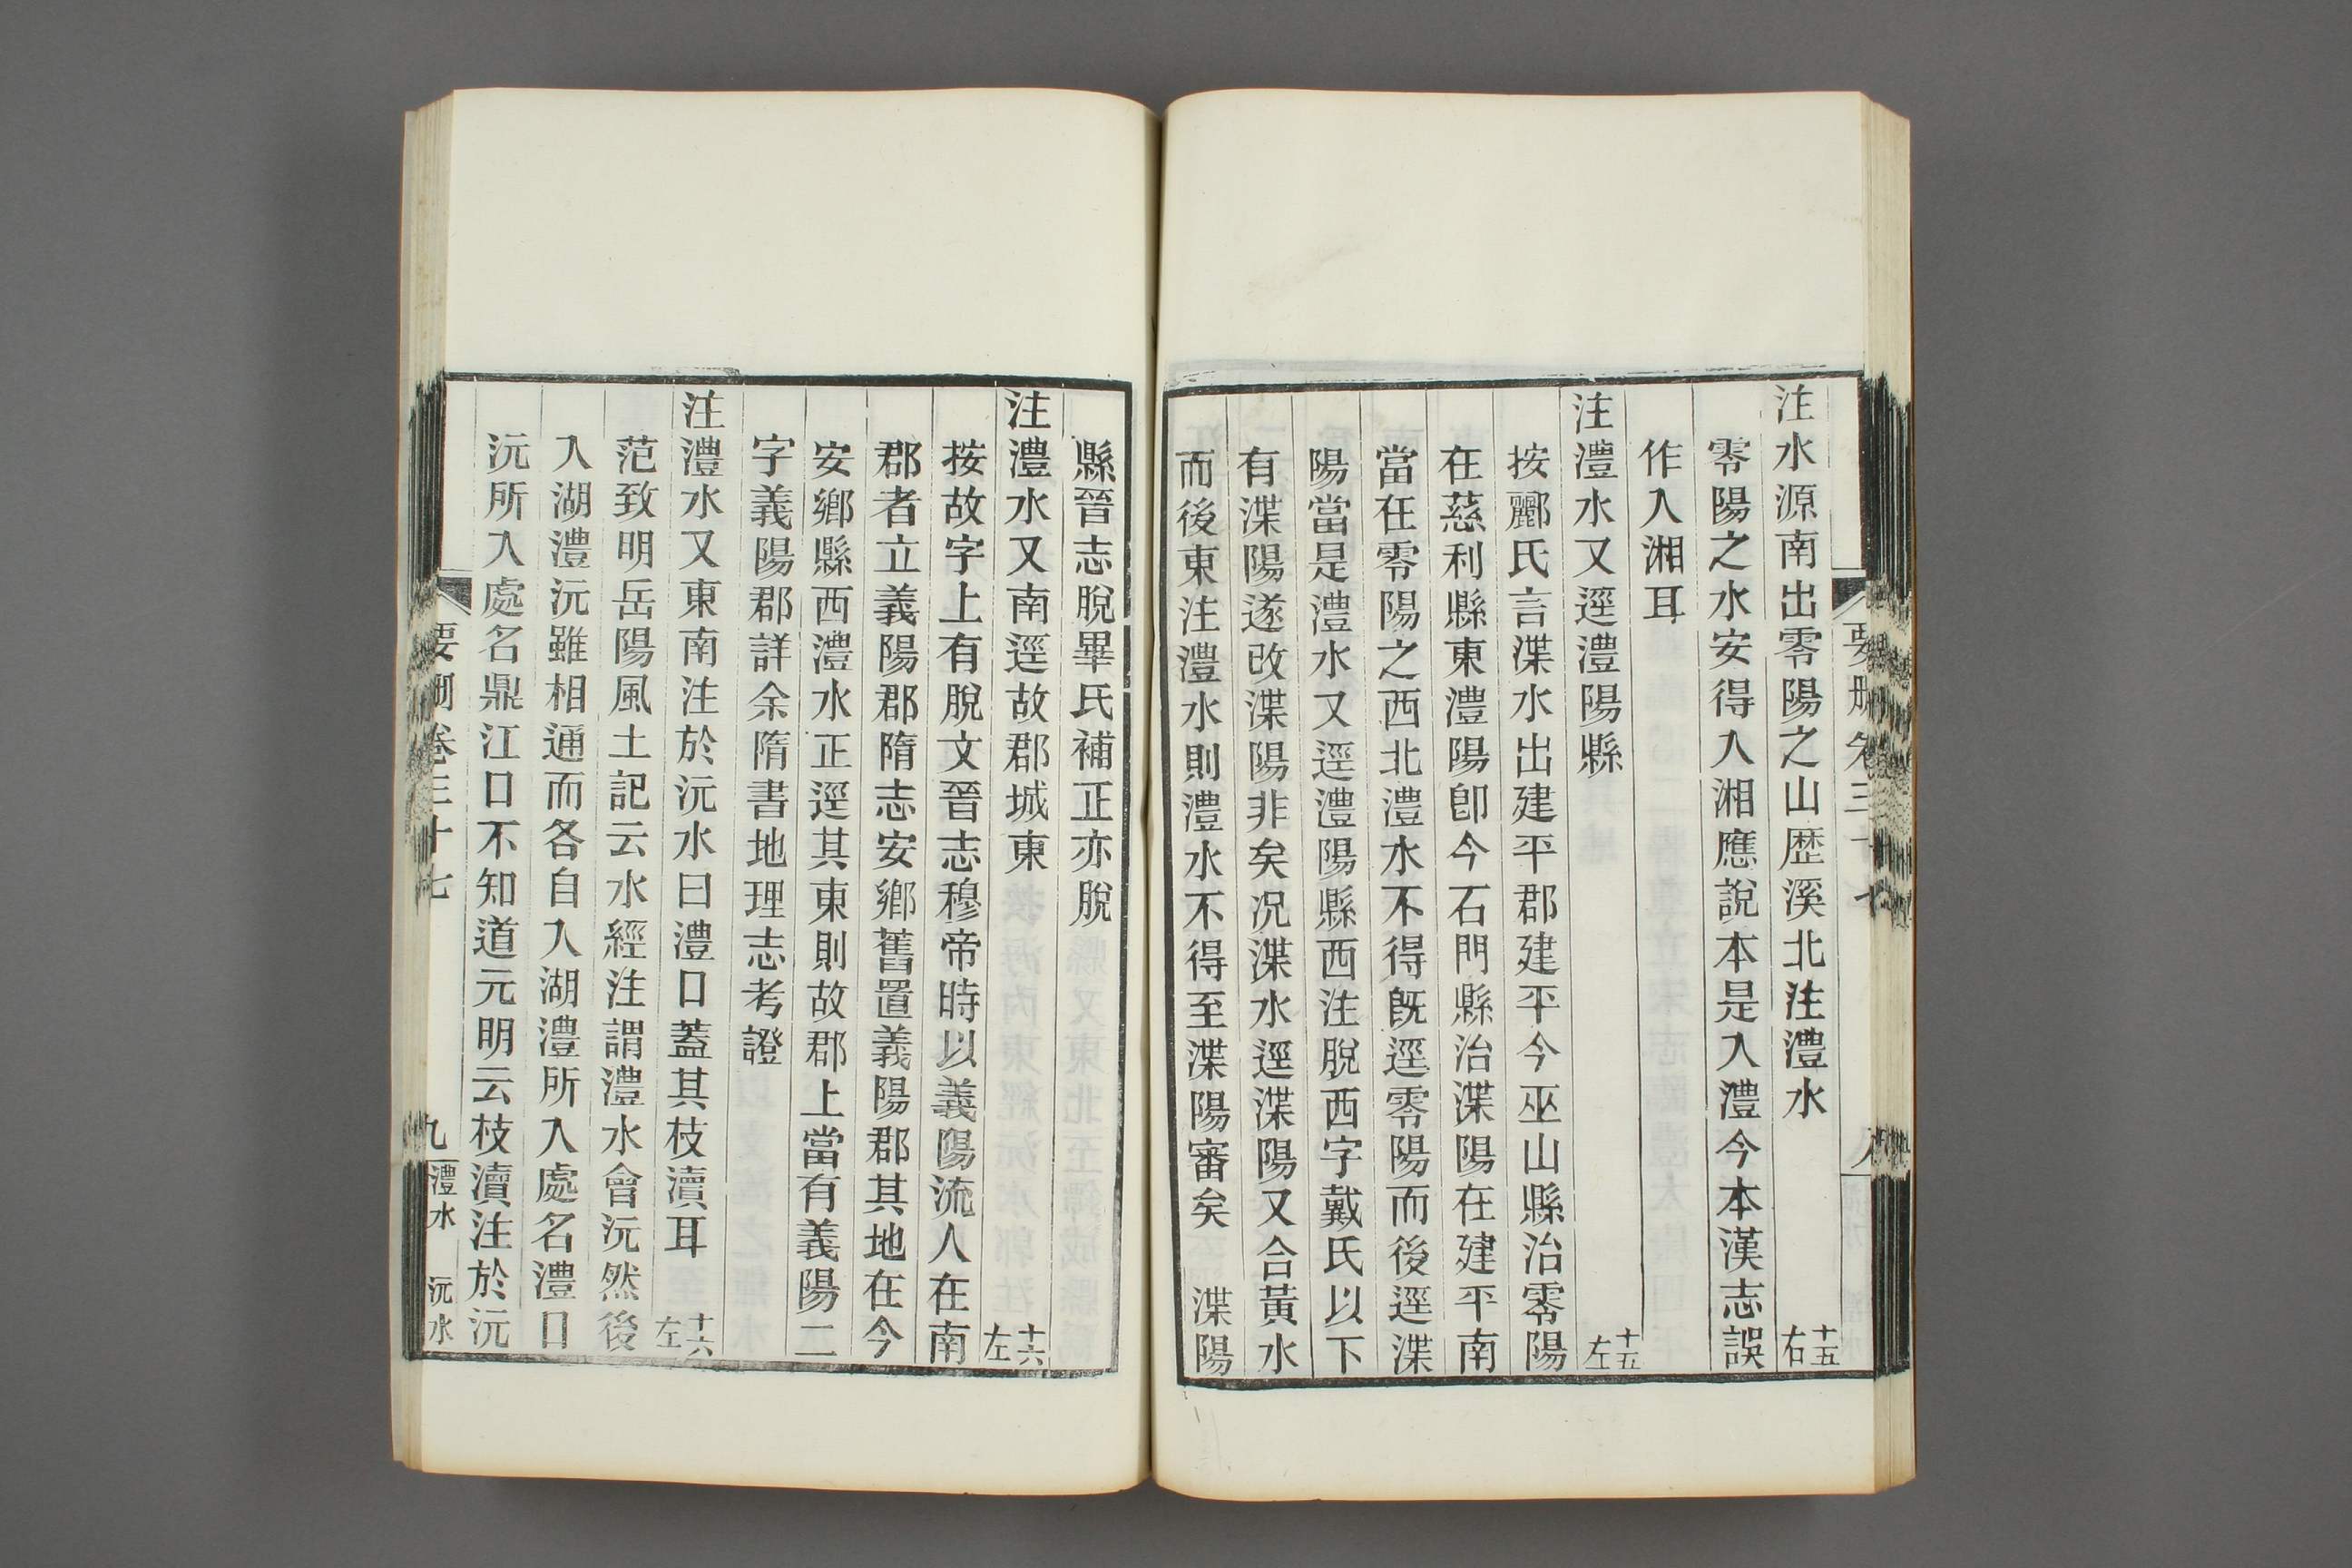 注水源南出零陽之山歷溪北注澧水 十五右
零陽之水安得入湘應說本是入澧今本漢志誤
作入湘耳
注澧水又逕澧陽縣 十五左
按酈氏言渫水出建平郡建平今巫山縣治零陽
在慈利縣東澧陽卽今石門縣治渫陽在建平南
當在零陽之西北澧水不得旣逕零陽而後逕渫
陽當是澧水又逕澧陽縣西注脫西字戴氏以下
有渫陽遂改渫陽非矣况渫水逕渫陽又合黃水
而後東注澧水則澧水不得至渫陽審矣 渫陽
縣晉志脫畢氏補正亦脫
注澧水又南逕故郡城東 十六左
按故字上有脫文晉志穆帝時以義陽流人在南
郡者立義陽郡隋志安鄉舊置義陽郡其地在今
安鄉縣西澧水正逕其東則故郡上當有義陽二
字義陽郡詳余隋書地理志考證
注澧水又東南注於沅水曰澧口蓋其枝瀆耳 十六左
范致明岳陽風土記云水經注謂澧水會沅然後
入湖澧沅雖相通而各自入湖澧所入處名澧口
沅所入處名鼎江口不知道元明云枝瀆注於沅
要刪卷三十七 九 澧水 沅水